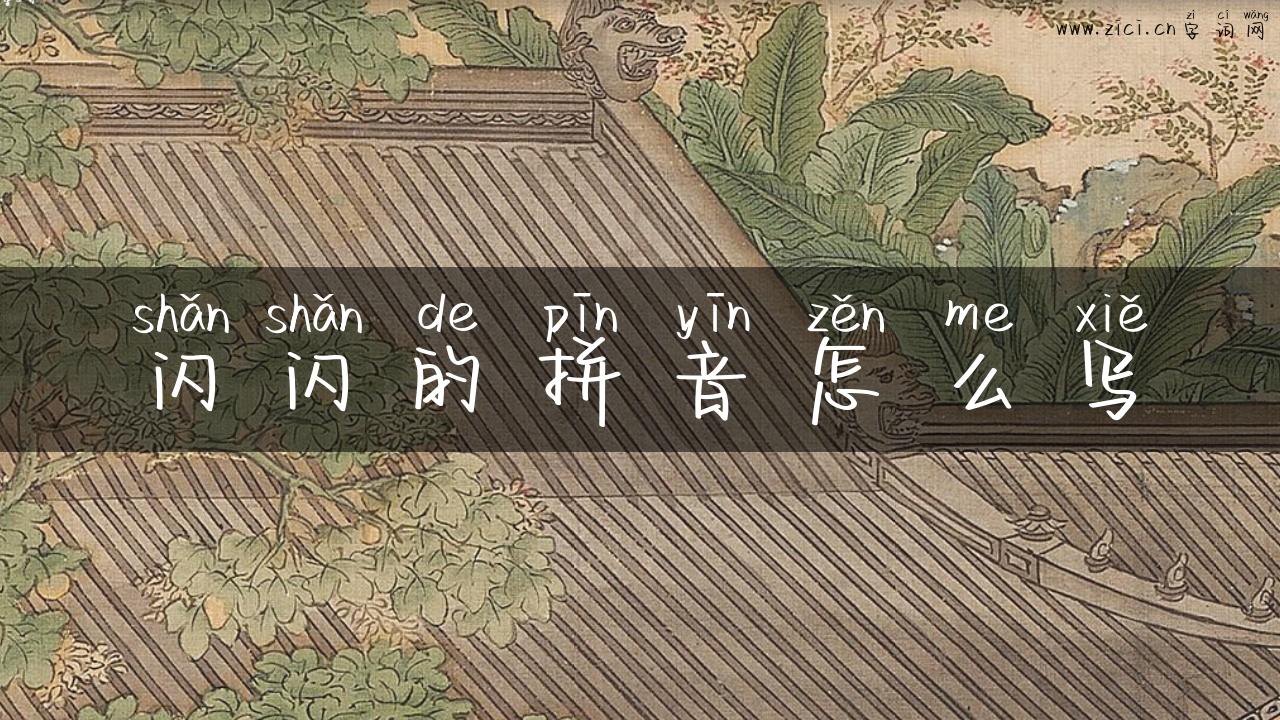 zì cí wǎng
www.zici.cn 字词网
shǎn shǎn de pīn yīn zěn me xiě
闪闪的拼音怎么写